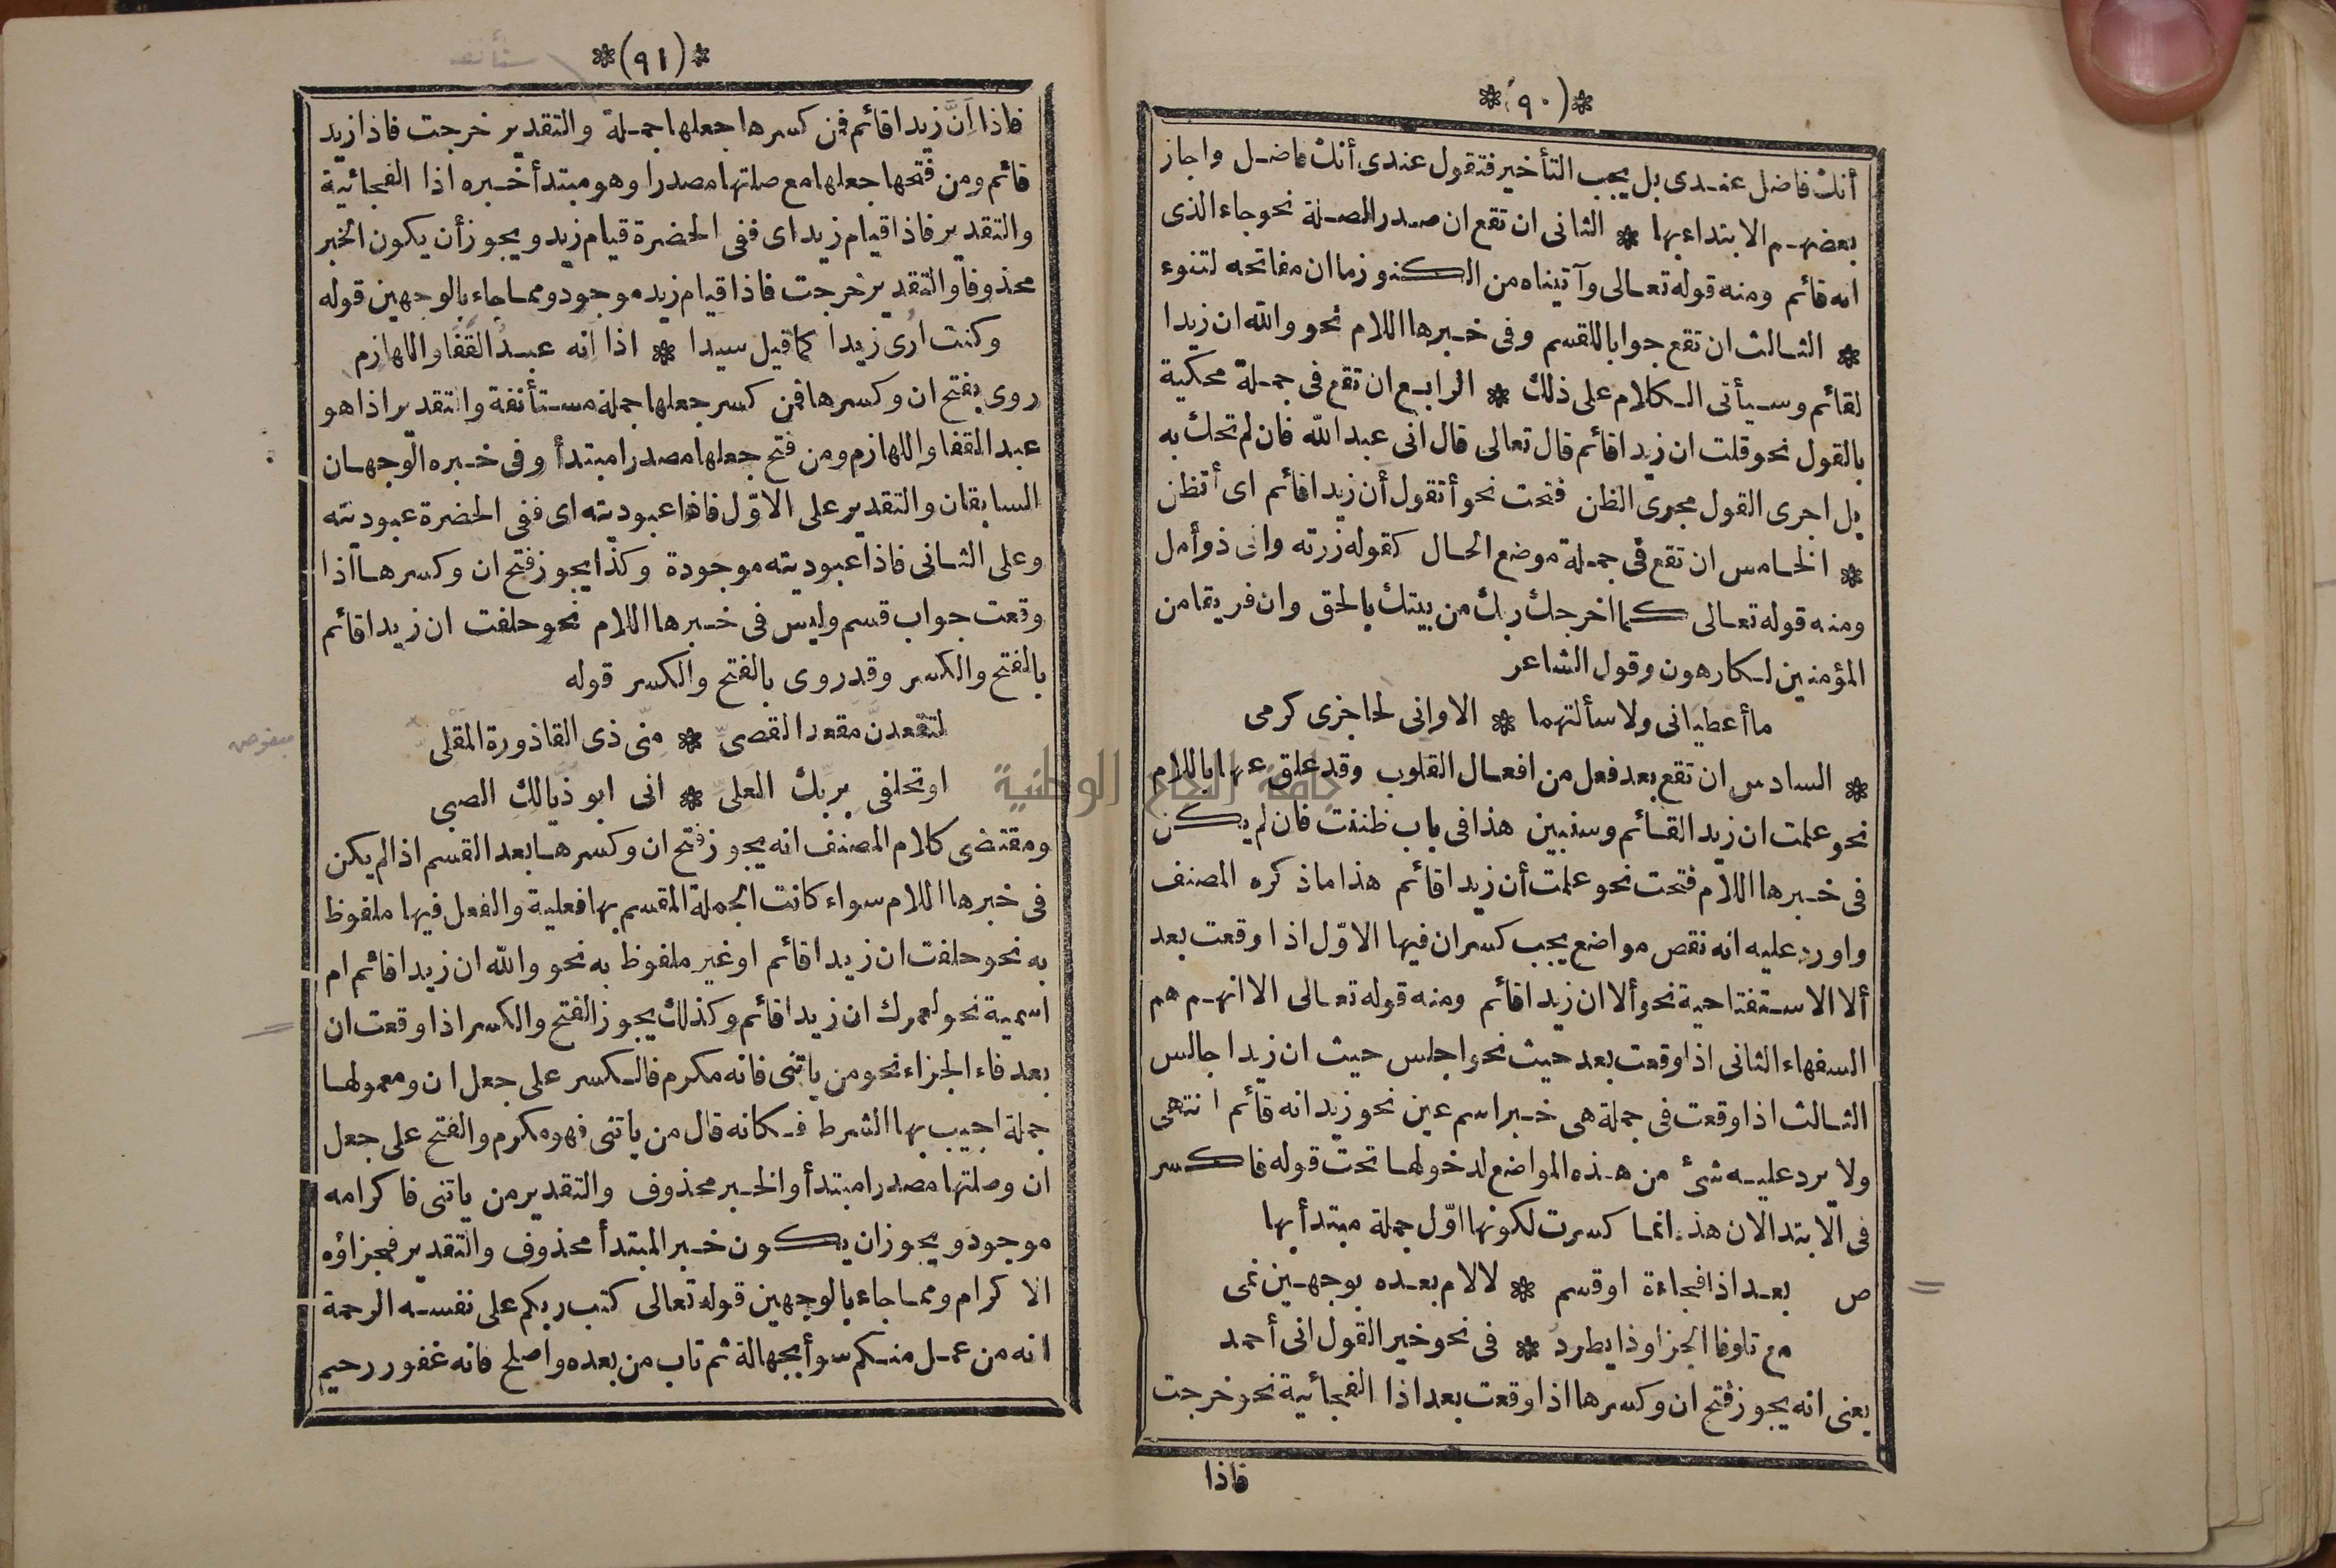 *(٩٠)*
أنك فاضل عندى بل يجب التأخير فتقول عندى أنك فاضل واجاز
بعضهم الابتداء بها * الثانى ان تقع ان صدر الصلة نحو جاء الذى
انه قائم ومنه قوله تعالى وآتيناه من الكنوز ما ان مفاتحه لتنوء
* الثالث ان تقع جوابا للقسم وفى خبرها اللام نحو والله ان زيدا
لقائم وسيأتى الكلام على ذلك * الرابع ان تقع فى جملة محكية
بالقول نحو قلت ان زيدا قائم قال تعالى قال انى عبد الله فان لم تحك به
بل اجرى القول مجرى الظن فتحت نحو أتقول أن زيدا قائم اى أتظن
* الخامس ان تقع فى جملة موضع الحال كقوله زرته وانى ذو أمل
ومنه قوله تعالى كما اخرجك ربك من بيتك بالحق وان فريقا من
المؤمنين لكارهون وقول الشاعر
ما أعطيانى ولا سألتهما * الا وانى لحاجزى كرمى
* السادس ان تقع بعد فعل من افعال القلوب وقد علق عنها باللام
نحو علمت ان زيد القائم وسنبين هذا فى باب ظننت فان لم يكن
فى خبرها اللام فتحت نحو علمت أن زيدا قائم هذا ما ذكره المصنف
واورد عليه انه نقص مواضع يجب كسر ان فيها الاول اذا وقعت بعد
ألا الاستفتاحية نحو ألا ان زيدا قائم ومنه قوله تعالى الا انهم هم
السفهاء الثانى اذا وقعت بعد حيث نحو اجلس حيث ان زيدا جالس
الثالث اذا وقعت فى جملة هى خبر اسم عين نحو زيد انه قائم انتهى
ولا يرد عليه شئ من هذه المواضع لدخولها تحت قوله فاكسر
فى الابتدا لان هذه انما كسرت لكونها اول جملة مبتدأ بها
ص بعد اذا فجاءة او قسم * لا لام بعده بوجهين نمى
مع تلو فا الجزا وذا يطرد * فى نحو خير القول انى أحمد
يعنى انه يجوز فتح ان وكسرها اذا وقعت بعد اذا الفجائية نحو خرجت
فاذا
*(٩١)*
فاذا اَنَّ زيدا قائم فمن كسرها جعلها جملة والتقدير خرجت فاذا زيد
قائم ومن فتحها جعلها مع صلتها مصدرا وهو مبتدأ خبره اذا الفجائية
والتقدير فاذا قيام زيد اى ففى الحضرة قيام زيد ويجوز أن يكون الخبر
محذوفا والتقدير خرجت فاذا قيام زيد موجود ومما جاء بالوجهين قوله
وكنت ارى زيدا كما قيل سيدا * اذا انه عبد القفا واللهازم
روى بفتح ان وكسرها فمن كسر جعلها جملة مستأنفة والتقدير اذا هو
عبد القفا واللهازم ومن فتح جعلها مصدرا مبتدأ وفى خبره الوجهان
السابقان والتقدير على الاول فاذا عبوديته اى ففى الحضرة عبوديته
وعلى الثانى فاذا عبوديته موجودة وكذا يجوز فتح ان وكسرها اذا
وقعت جواب قسم وليس فى خبرها اللام نحو حلفت ان زيدا قائم
بالفتح والكسر وقد روى بالفتح والكسر قوله
لتقعدن مقعد القصى * منى ذى القاذورة المقلى
او تحلفى بربك العلى * انى ابو ذيالك الصبى
ومقتضى كلام المصنف انه يجوز فتح ان وكسرها بعد القسم اذا لم يكن
فى خبرها اللام سواء كانت الجملة المقسم بها فعلية والفعل فيها ملفوظ
به نحو حلفت ان زيدا قائم او غير ملفوظ به نحو والله ان زيدا قائم ام
اسمية نحو لعمرك ان زيدا قائم وكذلك يجوز الفتح والكسر اذا وقعت ان
بعد فاء الجزاء نحو من ياتنى فانه مكرم فالكسر على جعل ان ومعمولها
جملة اجيب بها الشرط فكانه قال من ياتنى فهو مكرم والفتح على جعل
ان وصلتها مصدرا مبتدأ والخبر محذوف والتقدير من ياتنى فاكرامه
موجود ويجوز ان يكون خبر المبتدأ محذوف والتقدير فجزاؤه
الاكرام ومما جاء بالوجهين قوله تعالى كتب ربكم على نفسه الرحمة
انه من عمل منكم سوأ بجهالة ثم تاب من بعده واصلح فانه غفور رحيم
جامعة النجاح الوطنية